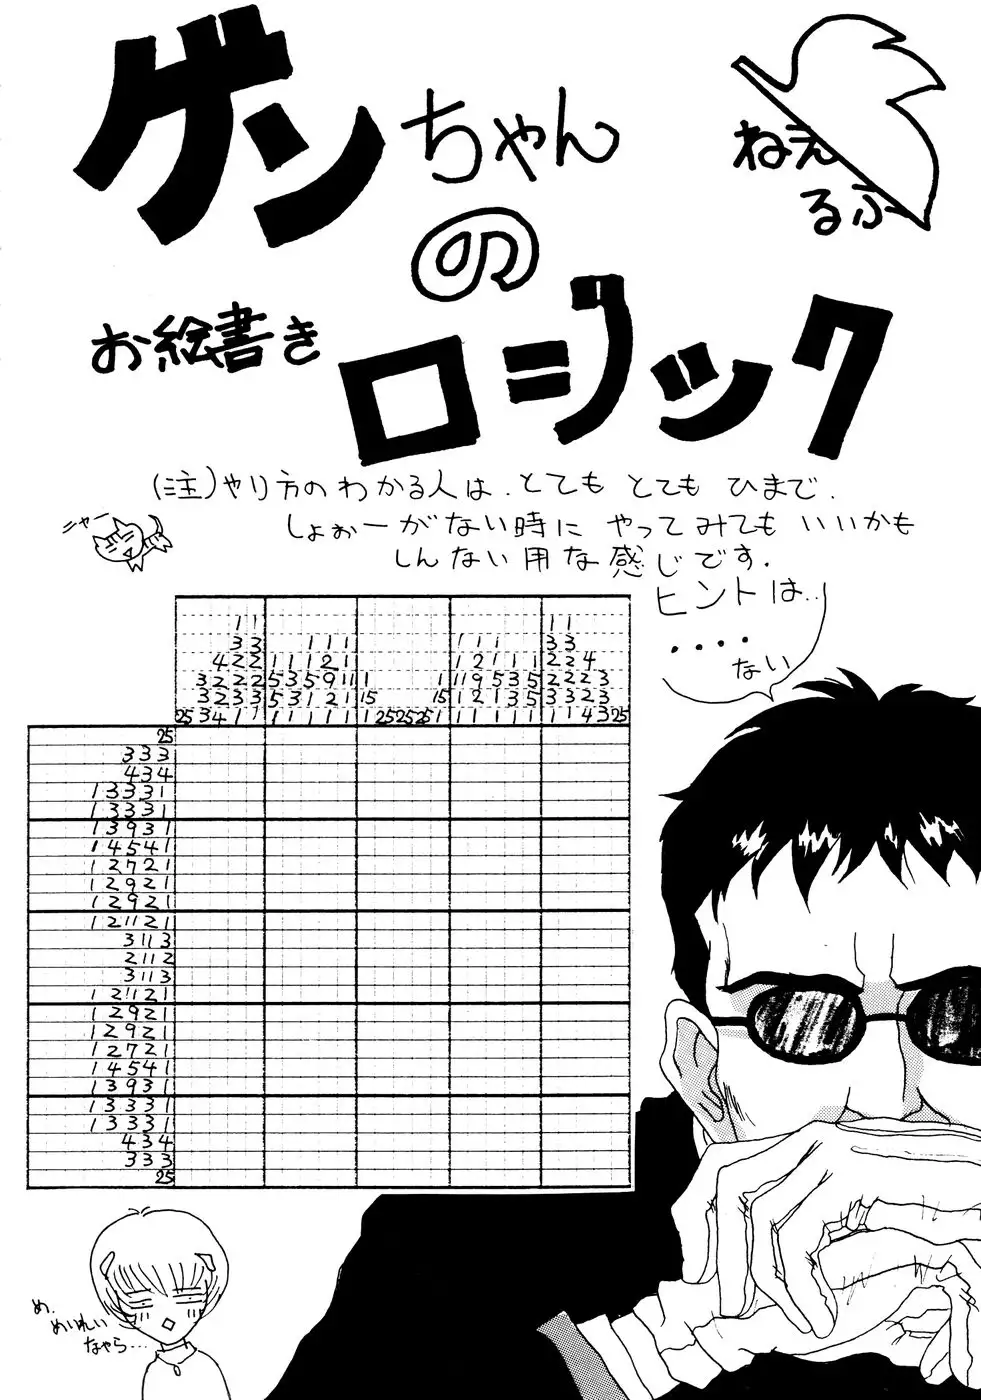 ゲンちゃん
の
お絵書き
ロジック
ねえ
るふ
(注)やり方のわかる人は、とても とても ひまで、
しょぉーがない時に やってみても いいかも
しんない用な感じです.
ニャー
ヒントは..
....
ない
1 1
3 3 1 1 1 1 1 1 3 3
4 2 2 1 1 1 2 1 1 2 1 1 1 2 2 4
3 2 2 2 5 3 5 9 11 1 1 11 9 5 3 5 2 2 2 3
3 2 3 3 5 3 1 2 1 15 15 1 2 1 3 5 3 3 2 3
25 3 4 1 1 1 1 1 1 1 1 25 25 25 1 1 1 1 1 1 1 1 1 4 3 25
25
3 3 3
4 3 4
1 3 3 3 1
1 3 3 3 1
1 3 9 3 1
1 4 5 4 1
1 2 7 2 1
1 2 9 2 1
1 2 9 2 1
1 2 11 2 1
3 11 3
2 11 2
3 11 3
1 2 11 2 1
1 2 9 2 1
1 2 9 2 1
1 2 7 2 1
1 4 5 4 1
1 3 9 3 1
1 3 3 3 1
1 3 3 3 1
4 3 4
3 3 3
25
め、
めいれい
なゃら...